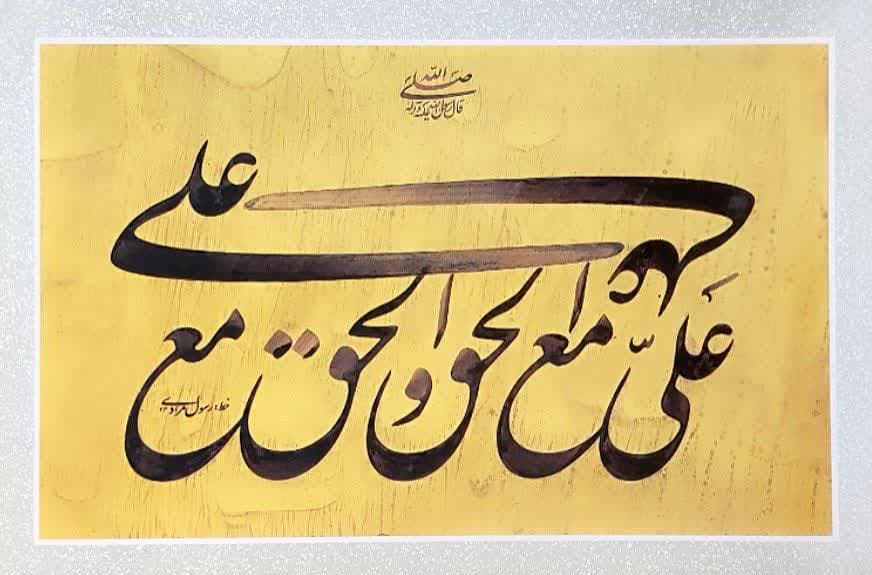 صلی الله
قال رسول الله علیه و آله
علیّ مع الحق و الحق مع
علی
خط: رسول مرادی